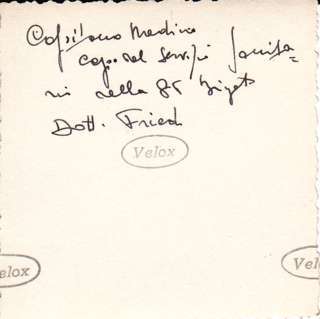 Capitano Medico
Capo del Servizi Sanita=
ri della 85 Brigata
Dott. Friedl
Velox
elox
Vel